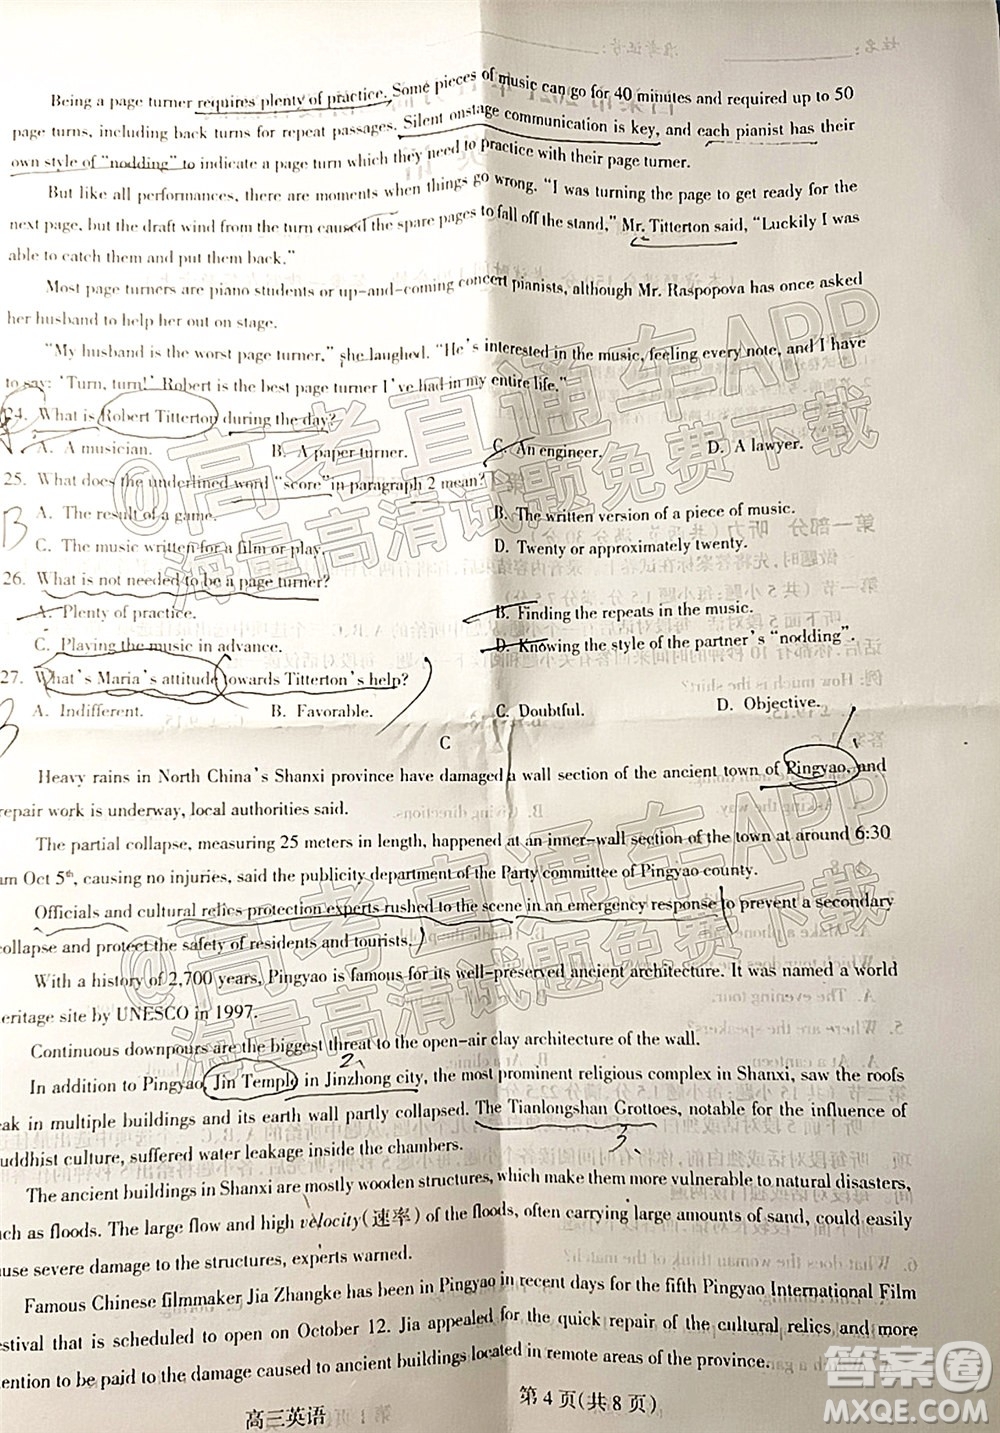 Being a page turner requires plenty of practice. Some pieces of music can go for 40 minutes and required up to 50
page turns, including back turns for repeat passages. Silent onstage communication is key, and each pianist has their
own style of "nodding" to indicate a page turn which they need to practice with their page turner.
But like all performances, there are moments when things go wrong. "I was turning the page to get ready for the
next page, but the draft wind from the turn caused the spare pages to fall off the stand," Mr. Titterton said, "Luckily I was
able to catch them and put them back."
Most page turners are piano students or up-and-coming concert pianists, although Mr. Raspopova has once asked
her husband to help her out on stage.
"My husband is the worst page turner," she laughed. "He's interested in the music, feeling every note, and I have
to say: 'Turn, turn!' Robert is the best page turner I've had in my entire life."
24. What is Robert Titterton during the day?
A. A musician. B. A paper turner. C. An engineer. D. A lawyer.
25. What does the underlined word "score" in paragraph 2 mean?
A. The result of a game. B. The written version of a piece of music.
C. The music written for a film or play. D. Twenty or approximately twenty.
26. What is not needed to be a page turner?
A. Plenty of practice. B. Finding the repeats in the music.
C. Playing the music in advance. D. Knowing the style of the partner's "nodding".
27. What's Maria's attitude towards Titterton's help?
A. Indifferent. B. Favorable. C. Doubtful. D. Objective.
C
Heavy rains in North China's Shanxi province have damaged a wall section of the ancient town of Pingyao, and
repair work is underway, local authorities said.
The partial collapse, measuring 25 meters in length, happened at an inner-wall section of the town at around 6:30
am Oct 5th, causing no injuries, said the publicity department of the Party committee of Pingyao county.
Officials and cultural relics protection experts rushed to the scene in an emergency response to prevent a secondary
collapse and protect the safety of residents and tourists.
With a history of 2,700 years, Pingyao is famous for its well-preserved ancient architecture. It was named a world
heritage site by UNESCO in 1997.
Continuous downpours are the biggest threat to the open-air clay architecture of the wall.
In addition to Pingyao, Jin Temple in Jinzhong city, the most prominent religious complex in Shanxi, saw the roofs
eak in multiple buildings and its earth wall partly collapsed. The Tianlongshan Grottoes, notable for the influence of
uddhist culture, suffered water leakage inside the chambers.
The ancient buildings in Shanxi are mostly wooden structures, which make them more vulnerable to natural disasters,
such as floods. The large flow and high velocity(速率) of the floods, often carrying large amounts of sand, could easily
ause severe damage to the structures, experts warned.
Famous Chinese filmmaker Jia Zhangke has been in Pingyao in recent days for the fifth Pingyao International Film
estival that is scheduled to open on October 12. Jia appealed for the quick repair of the cultural relics, and more
tention to be paid to the damage caused to ancient buildings located in remote areas of the province.
高三英语 第 4 页(共 8 页)
@高考直通车APP
海量高清试题免费下载
@高考直通车APP
海量高清试题免费下载
答案圈
MXQE.COM